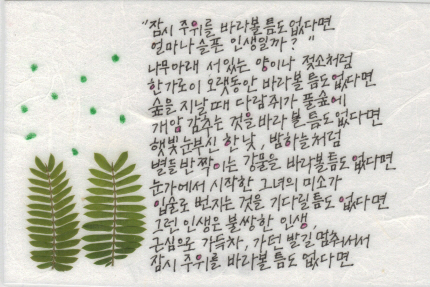 "잠시 주위를 바라볼 틈도 없다면
얼마나 슬픈 인생일까?"
나무아래 서있는 양이나 젖소처럼
한가로이 오랫동안 바라볼 틈도없다면
숲을 지날 때 다람쥐가 풀숲에
개암 감추는 것을 바라볼 틈도없다면
햇빛 눈부신 한낮, 밤하늘처럼
별들 반짝이는 강물을 바라볼 틈도 없다면
눈가에서 시작한 그녀의 미소가
입술로 번지는 것을 기다릴 틈도 없다면
그런 인생은 불쌍한 인생,
근심으로 가득차, 가던 발길 멈춰서서
잠시 주위를 바라볼 틈도 없다면